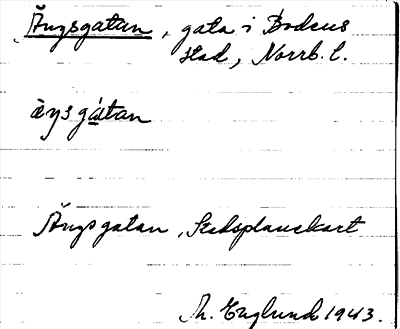 Ängsgatan, gata i Bodens
stad, Norrb. l.
äŋsgàtan
Ängsgatan, Stadsplanekart
Th. Englund 1943.